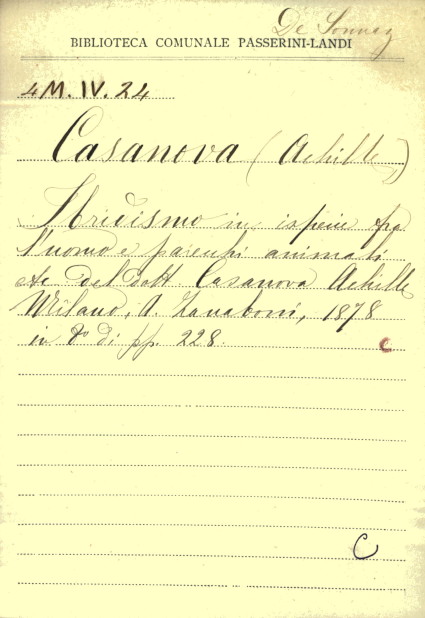 De Sonnaz
BIBLIOTECA COMUNALE PASSERINI-LANDI
4M.IV.24
Casanova (Achille)
Ibridismo in ispecie fra
l'uomo e parecchi animali
etc del dott Casanova Achille
Milano, A. Zanaboni, 1878
in 8° di pp. 228.
C
C